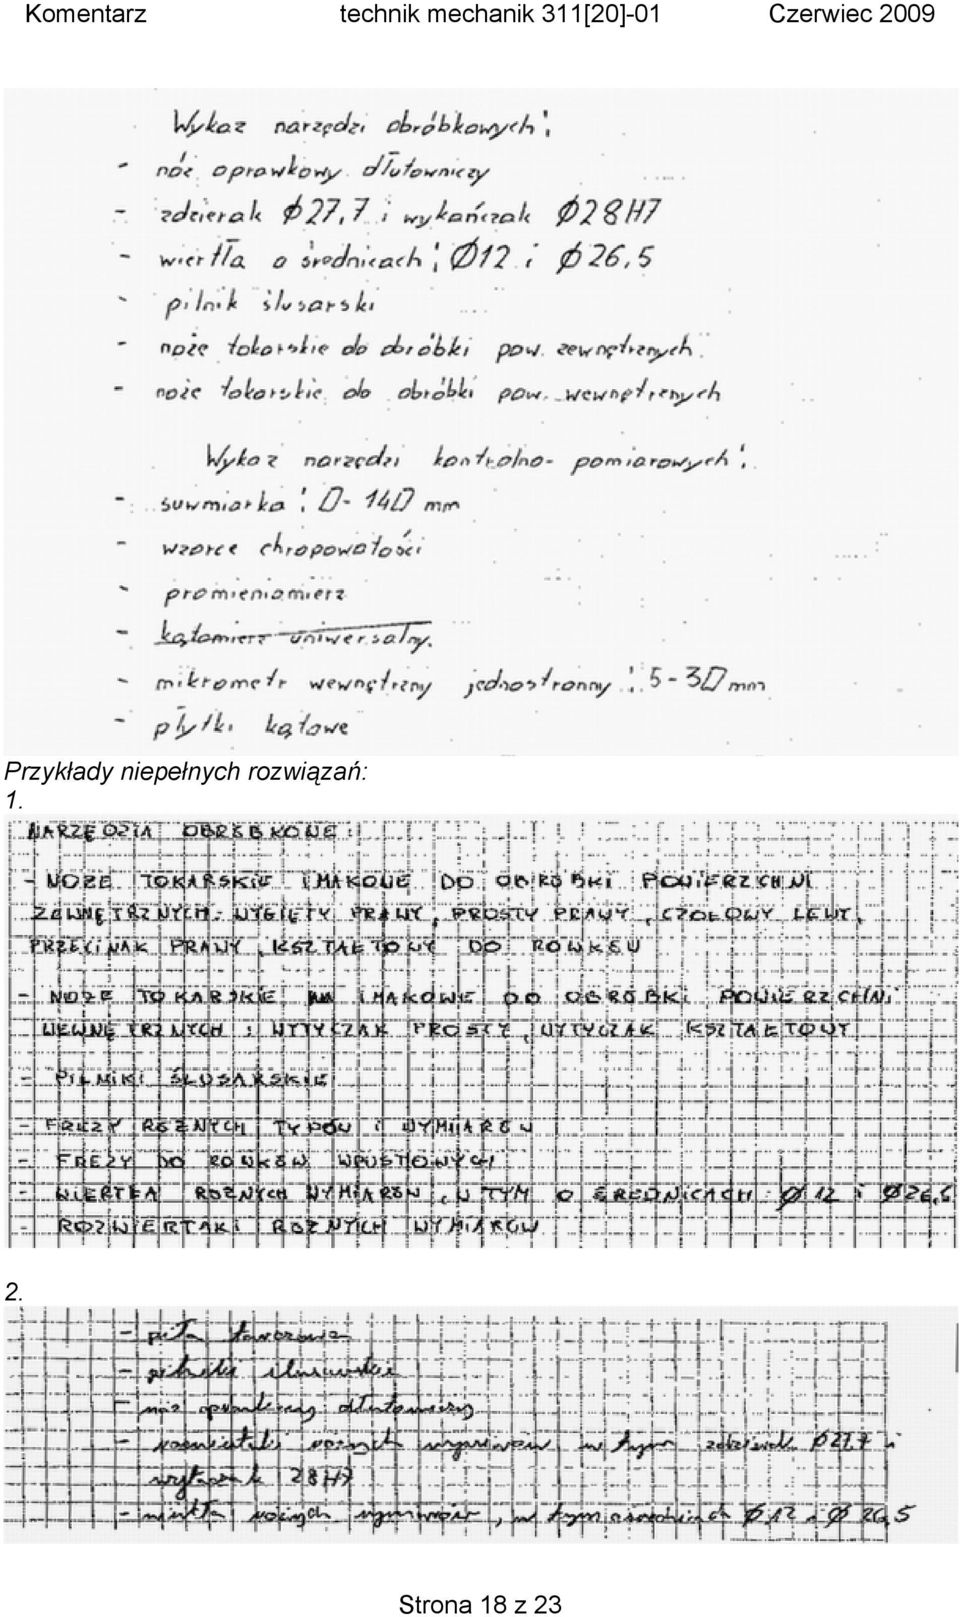 Komentarz technik mechanik 311[20]-01 Czerwiec 2009
Wykaz narzędzi obróbkowych:
- nóż oprawkowy dłutowniczy
- zdzierak Ø27,7 i wykańczak Ø28H7
- wiertła o średnicach: Ø12 i Ø26,5
- pilnik ślusarski
- noże tokarskie do obróbki pow. zewnętrznych
- noże tokarskie do obróbki pow. wewnętrznych
Wykaz narzędzi kontrolno-pomiarowych:
- suwmiarka: 0-140 mm
- wzorce chropowatości
- promieniomierz
- kątomierz uniwersalny.
- mikrometr wewnętrzny jednostronny: 5-30 mm
- płytki kątowe
Przykłady niepełnych rozwiązań:
1.
NARZĘDZIA OBRÓBKOWE:
- NOŻE TOKARSKIE IMAKOWE DO OBRÓBKI POWIERZCHNI
ZEWNĘTRZNYCH: WYGIĘTY PRAWY, PROSTY PRAWY, CZOŁOWY LEWY,
PRZECINAK PRAWY, KSZTAŁTOWY DO ROWKÓW
- NOŻE TOKARSKIE IMAKOWE DO OBRÓBKI POWIERZCHNI
WEWNĘTRZNYCH: WYTYCZAK PROSTY, WYTYCZAK KSZTAŁTOWY
- PILNIKI ŚLUSARSKIE
- FREZY RÓŻNYCH TYPÓW I WYMIARÓW
- FREZY DO ROWKÓW WPUSTOWYCH
- WIERTŁA RÓŻNYCH WYMIARÓW, W TYM O ŚREDNICACH: Ø12 i Ø26,5
- ROZWIERTAKI RÓŻNYCH WYMIARÓW
2.
- piła tarczowa
- pilniki ślusarskie
- nóż oprawkowy dłutowniczy
- rozwiertaki różnych wymiarów w tym zdzierak Ø27,7 i
28H7
- wiertła różnych wymiarów, w tym o średnicach Ø12 i Ø26,5
Strona 18 z 23